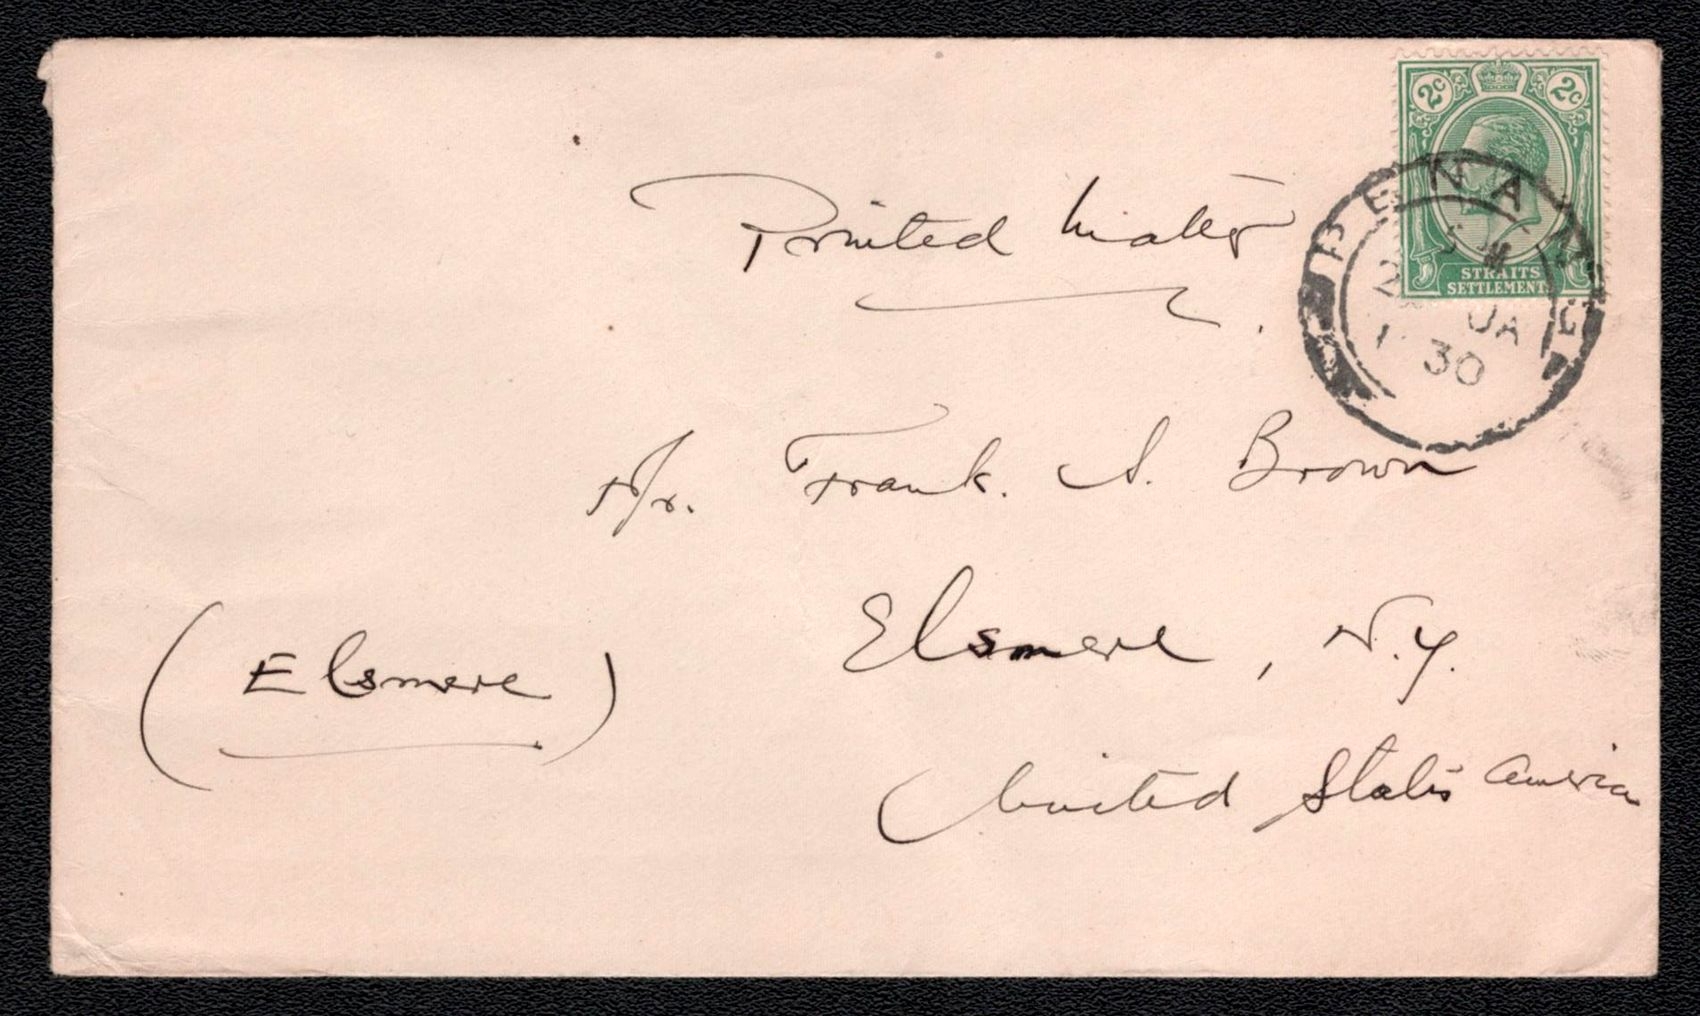 2c 2c
STRAITS
SETTLEMENTS
PENANG
30
Printed Matter
Mr. Frank. A. Brown
Elsmere, N.Y.
(Elsmere)
United States America